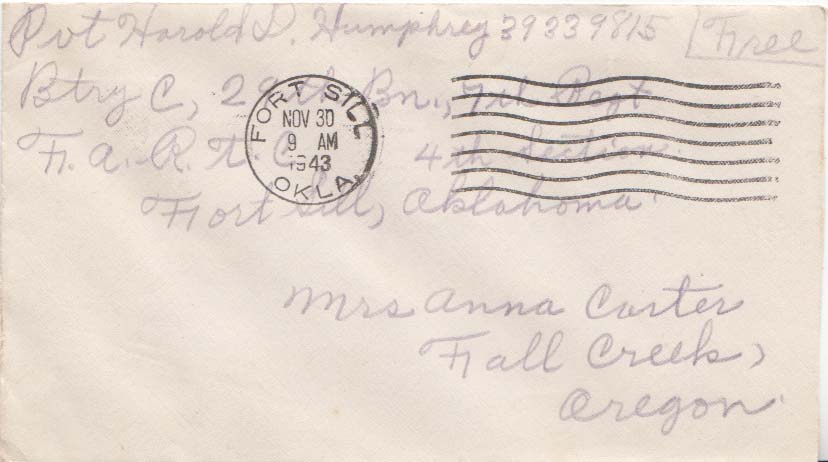 Pvt Harold D. Humphrey 39339815 Free
Btry C, 29th Bn., 7th Regt
F. A. R. T. C. 4th Section.
Fort Sill, Oklahoma
FORT SILL
NOV 30
9 AM
1943
OKLA.
Mrs Anna Carter
Fall Creek,
Oregon.